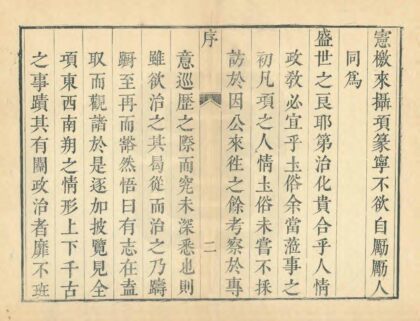 憲檄來攝項篆寧不欲自勵勵人
同爲
盛世之良耶第治化貴合乎人情
政敎必宜乎土俗余當蒞事之
初凡項之人情土俗未嘗不採
訪於因公來徃之餘考察於專
序
二
意巡歷之際而究未深悉也則
雖欲治之其曷從而治之乃躊
躕至再而豁然悟曰有志在盍
取而觀諸於是逐加披覽見全
項東西南朔之情形上下千古
之事蹟其有關政治者靡不班